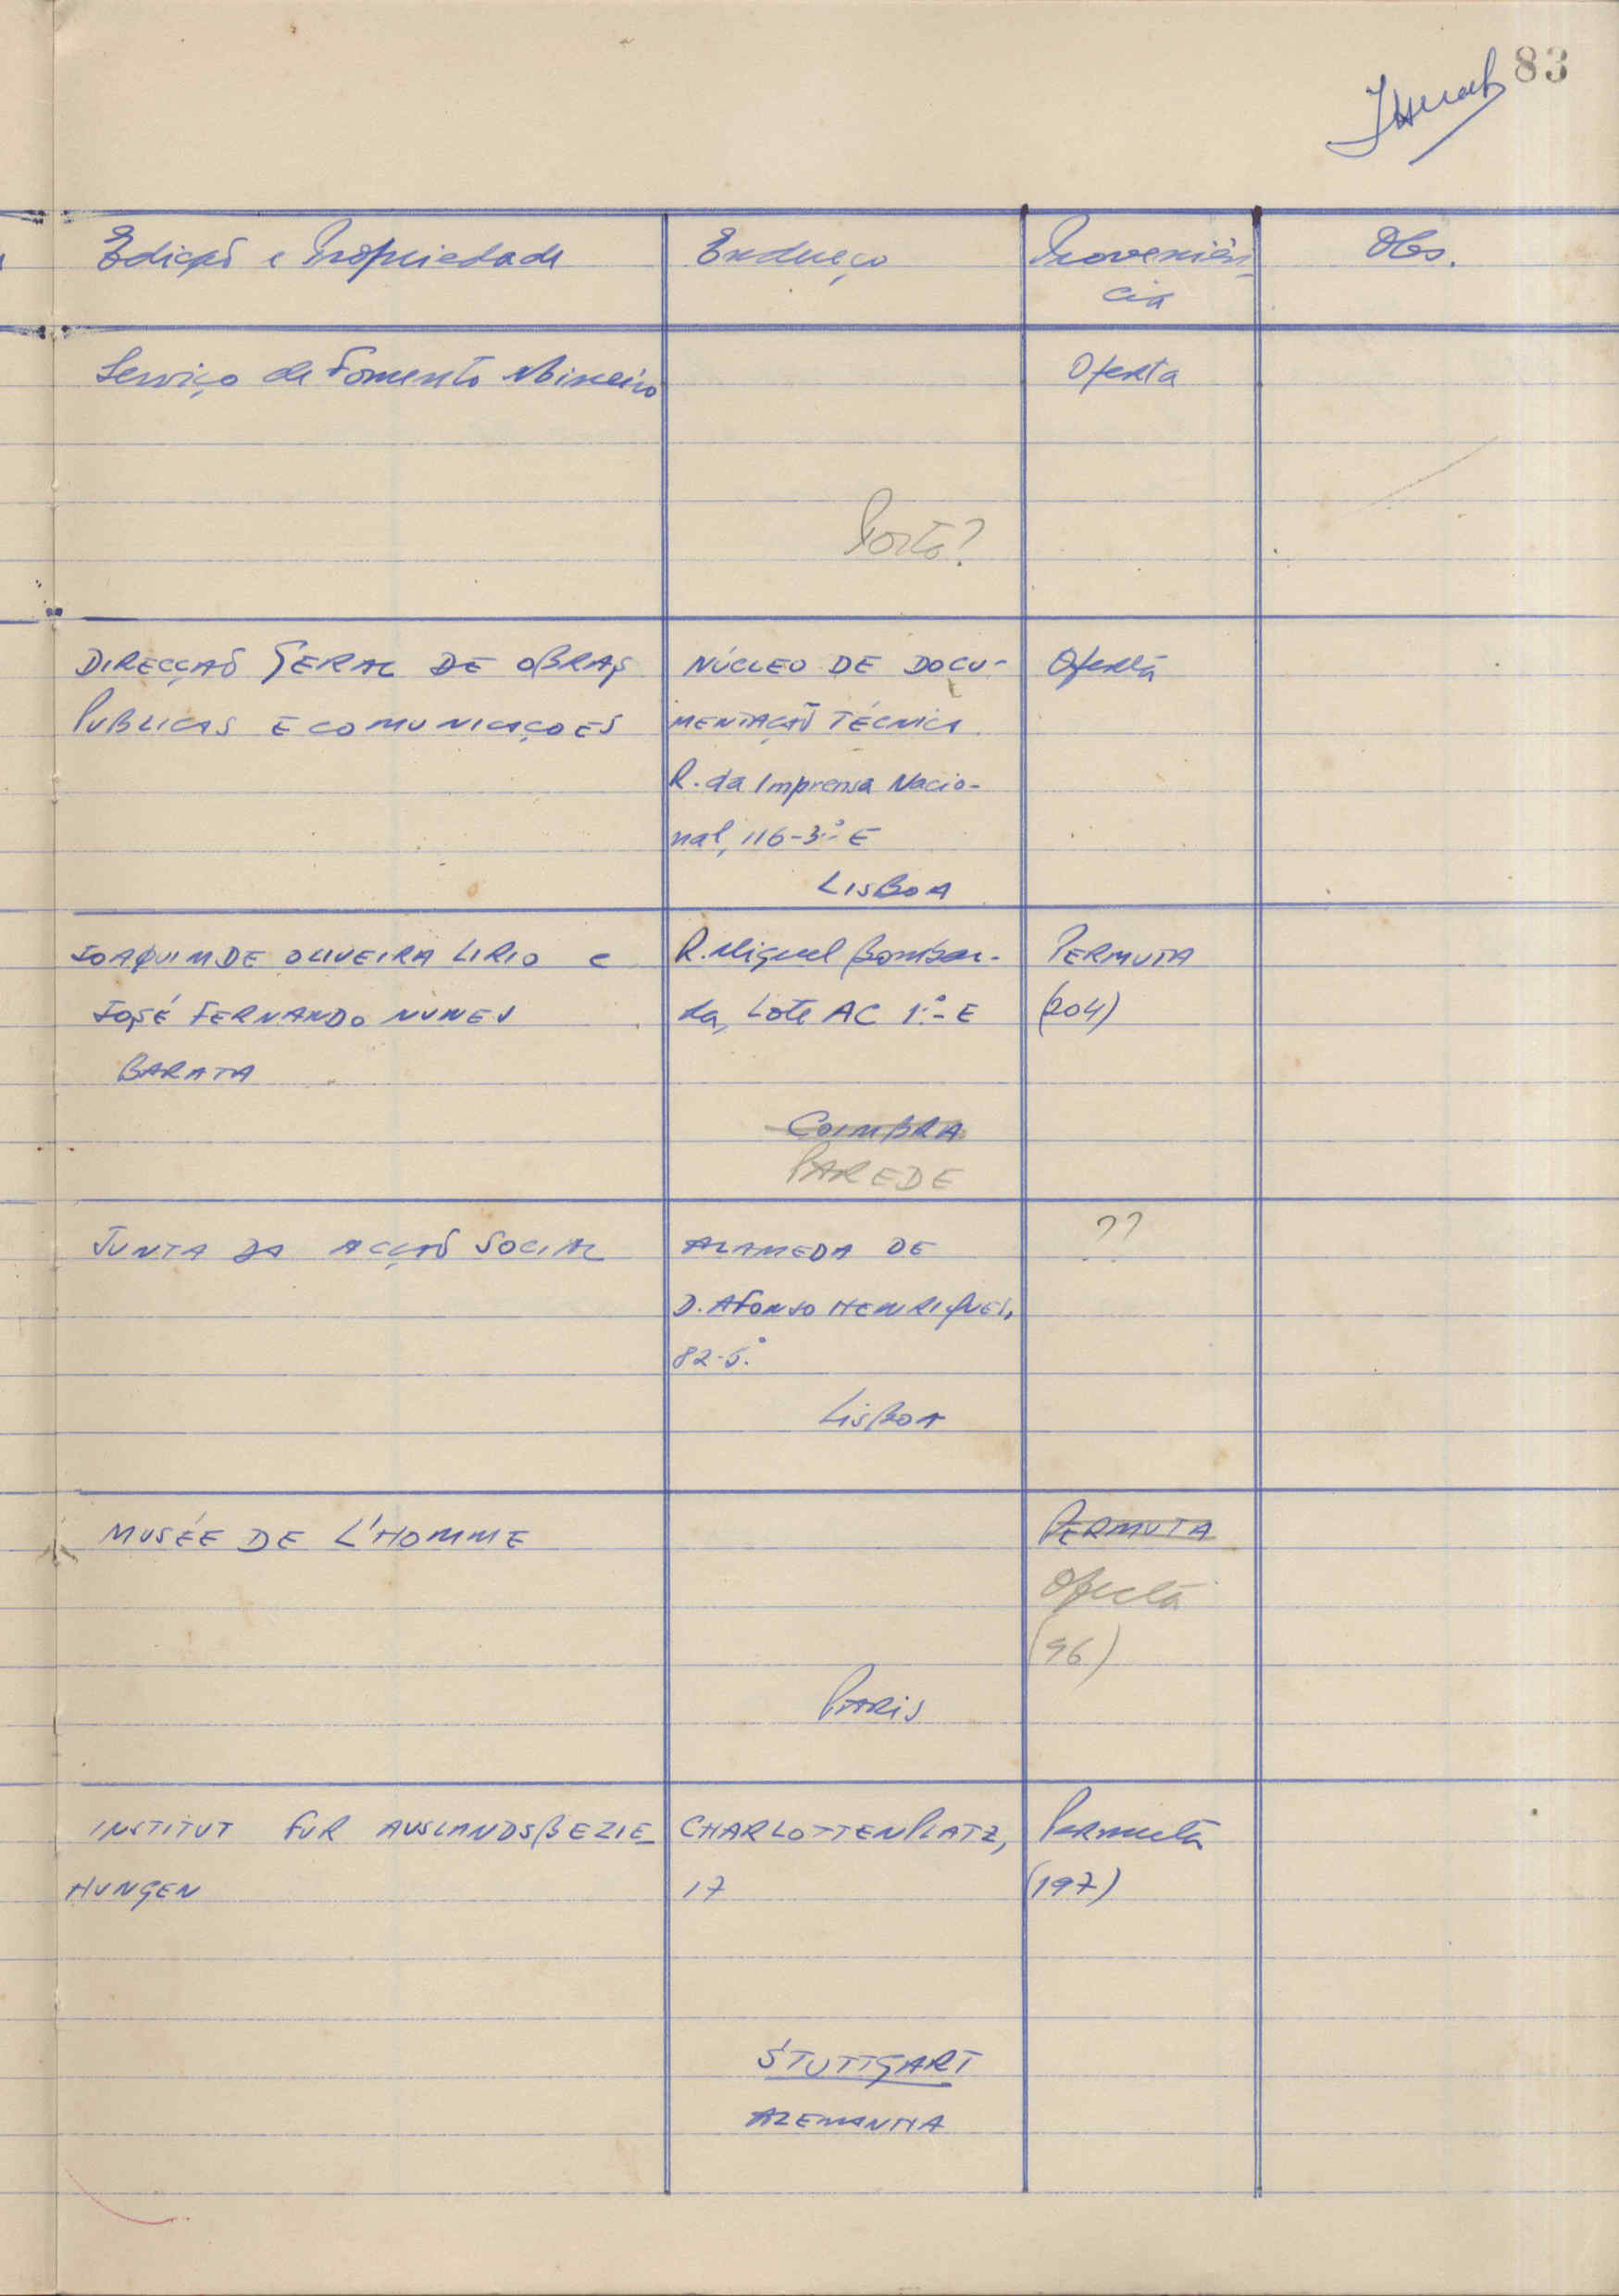 83
Edição e Propriedade
Endereço
Proveniên-
cia
Obs.
Serviço de Fomento Mineiro
Oferta
Porto?
DIRECÇÃO GERAL DE OBRAS
PUBLICAS E COMUNICAÇOES
NÚCLEO DE DOCU-
MENTAÇÃO TÉCNICA
R. da Imprensa Nacio-
nal, 116-3.º E
LISBOA
Oferta
JOAQUIM DE OLIVEIRA LIRIO e
JOSÉ FERNANDO NUNES
BARATA
R. Miguel Bombar-
da, Lote AC 1.º-E
COIMBRA
PAREDE
PERMUTA
(204)
JUNTA DA ACÇÃO SOCIAL
ALAMEDA DE
D. AFONSO HENRIQUES,
82-5.º
LISBOA
??
MUSÉE DE L'HOMME
PARIS
PERMUTA
Oferta
(96)
INSTITUT FUR AUSLANDSBEZIE_
HUNGEN
CHARLOTTENPLATZ,
17
STUTTGART
ALEMANHA
Permuta
(197)